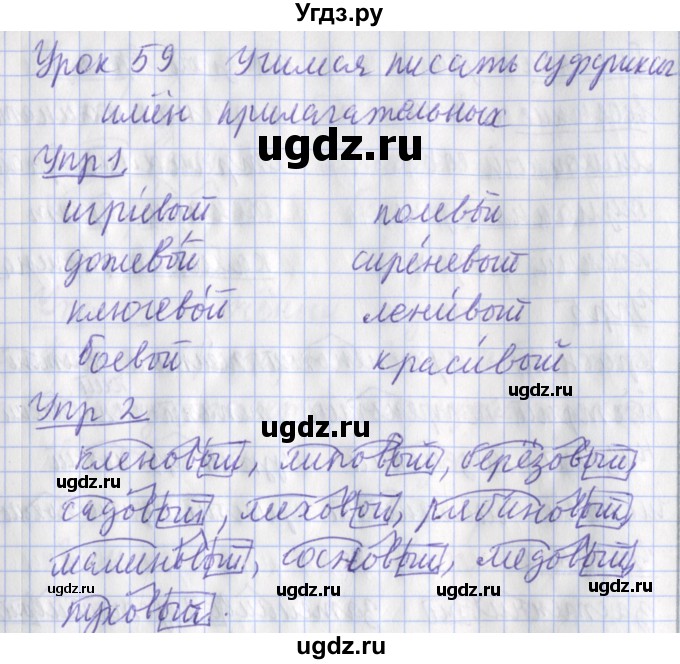 Угдз.ру
Урок 59 Учимся писать суффиксы
имён прилагательных
ugdz.ru
Упр 1.
игривый полевой
дожевой сиреневый
ключевой ленивый
боевой красивый
ugdz.ru
Упр 2
ugdz.ru
кленовый, липовый, берёзовый,
ugdz.ru ugdz.ru
садовый, меховой, рябиновый,
малиновый, сосновый, медовый,
ugdz.ru ugdz.ru
пуховый.
ugdz.ru